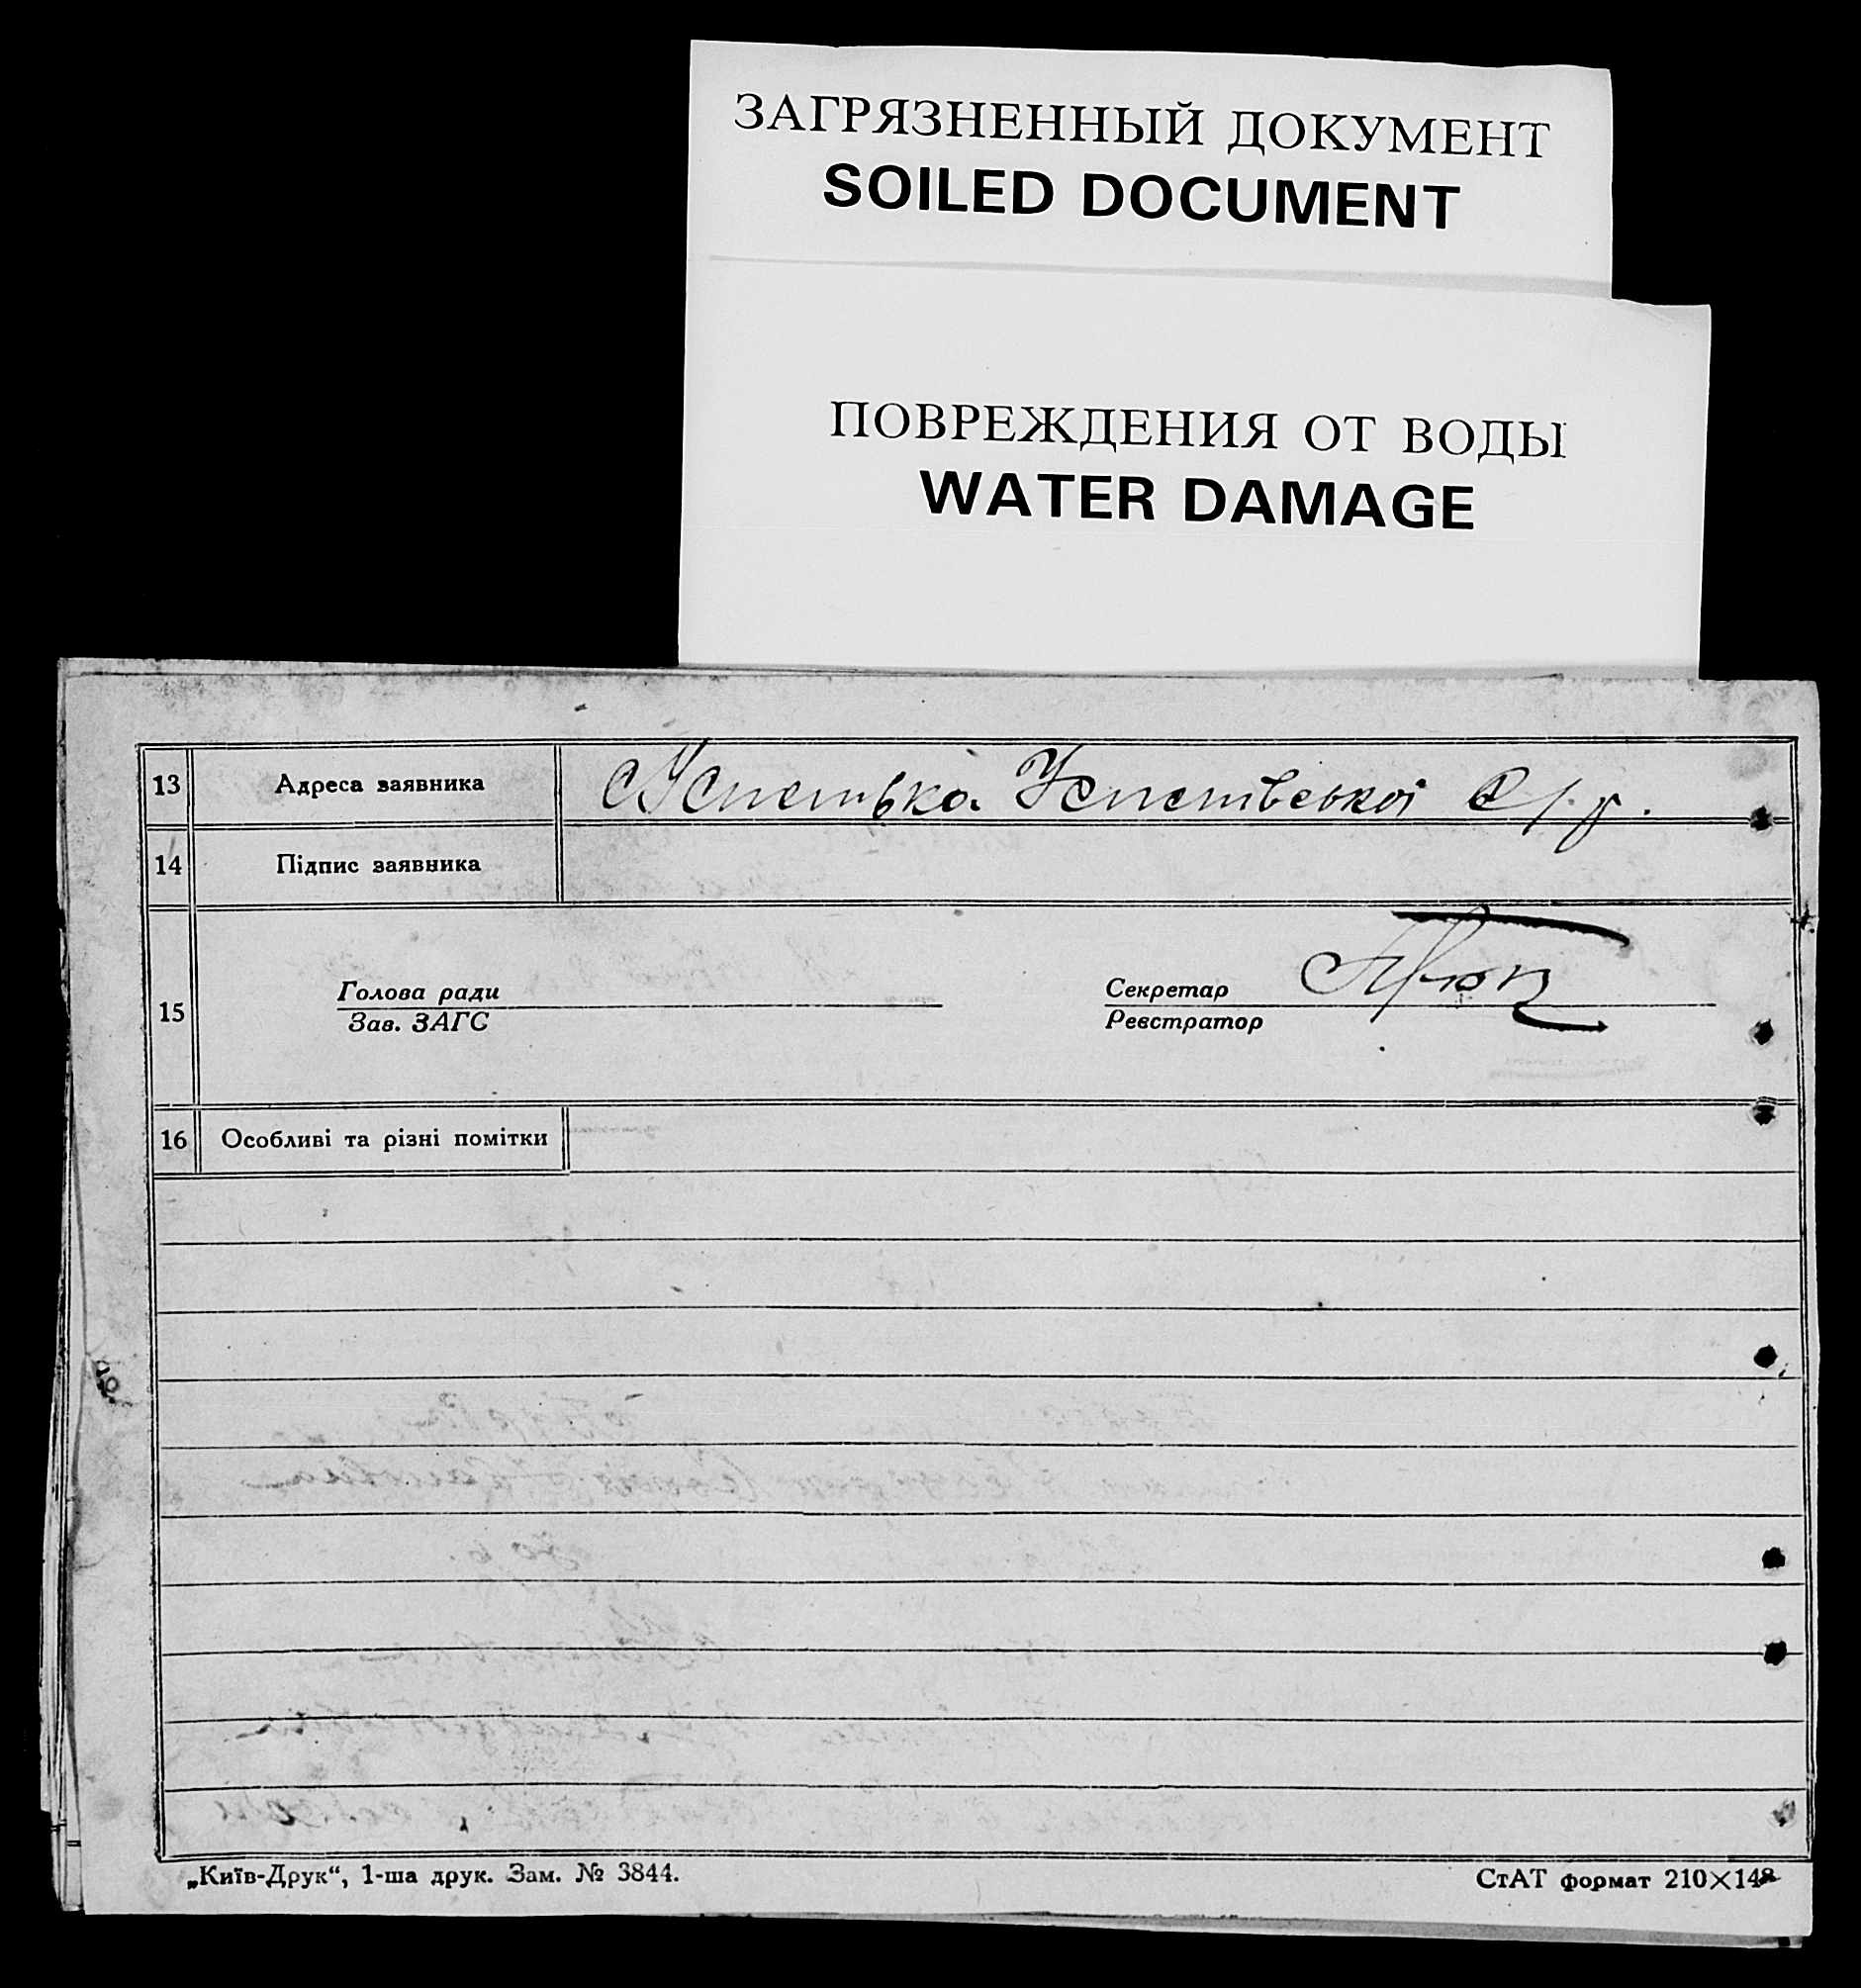 ЗАГРЯЗНЕННЫЙ ДОКУМЕНТ
SOILED DOCUMENT
ПОВРЕЖДЕНИЯ ОТ ВОДЫ
WATER DAMAGE
13 Адреса заявника с/р.
14 Підпис заявника
15 Голова ради
Зав. ЗАГС
Секретар
Реєстратор
16 Особливі та різні помітки
„Київ-Друк“, 1-ша друк. Зам. № 3844.
СтАТ формат 210×148